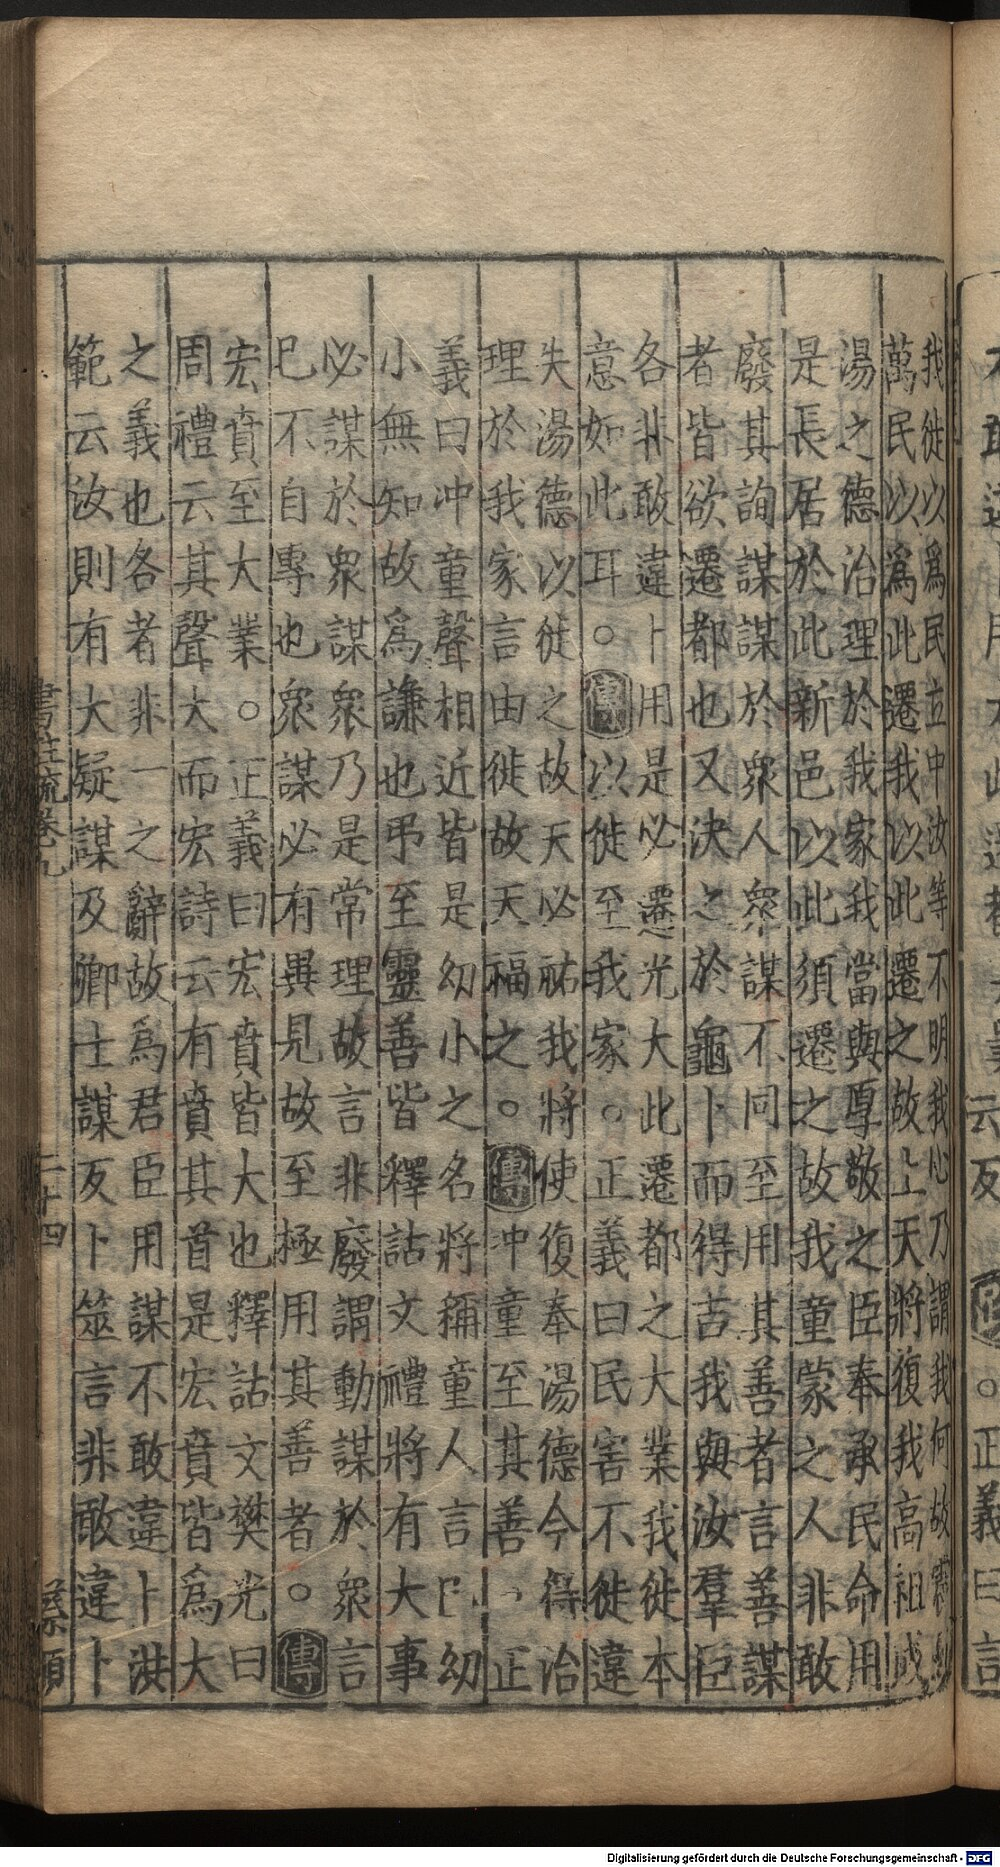 我徙以爲民立中汝等不明我心乃謂我何故震動
萬民以爲此遷我以此遷之故上天將復我高祖成
湯之德治理於我家我當與厚敬之臣奉承民命用
是長居於此新邑以此須遷之故我童蒙之人非敢
廢其詢謀謀於衆人衆謀不同至用其善者言善謀
者皆欲遷都也又決之於龜卜而得吉我與汝羣臣
各非敢違卜用是必遷光大此遷都之大業我徙本
意如此耳○傳以徙至我家○正義曰民害不徙違
失湯德以徙之故天必祐我將使復奉湯德今得治
理於我家言由徙故天福之○傳沖童至其善○正
義曰沖童聲相近皆是幼小之名將稱童人言己幼
小無知故爲謙也弔至靈善皆釋詁文禮將有大事
必謀於衆謀衆乃是常理故言非廢謂動謀於衆言
已不自專也衆謀必有異見故至極用其善者○傳
宏賁至大業○正義曰宏賁皆大也釋詁文樊光曰
周禮云其聲大而宏詩云有賁其首是宏賁皆爲大
之義也各者非一之辭故爲君臣用謀不敢違卜洪
範云汝則有大疑謀及卿士謀及卜筮言非敢違卜
書註疏卷九
二十四
云及
○正義曰言
Digitalisierung gefördert durch die Deutsche Forschungsgemeinschaft - DFG